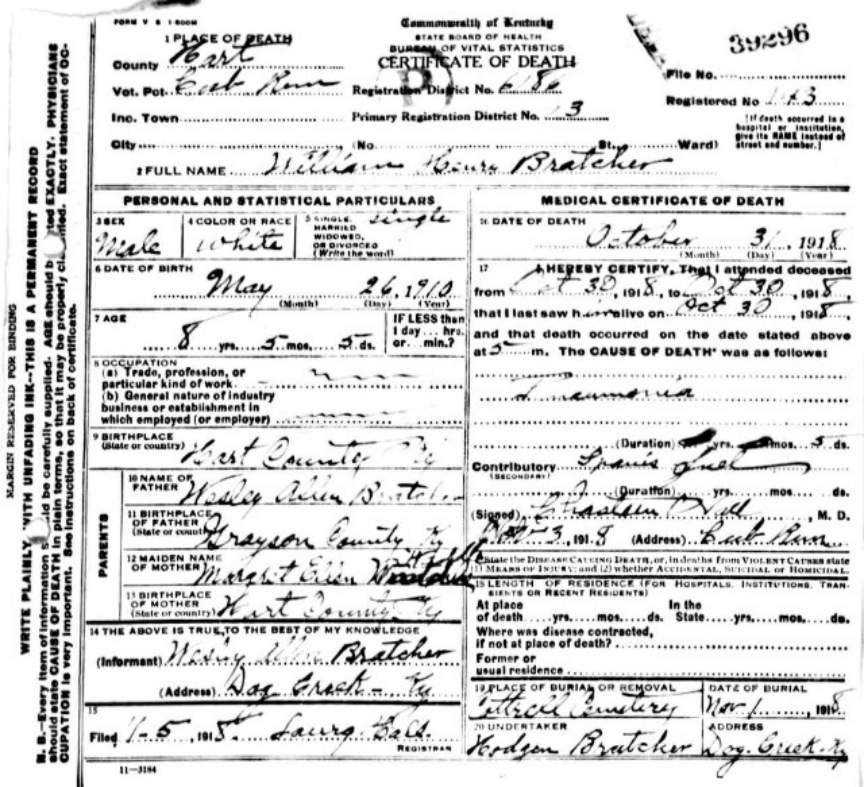 FORM V S 1-500M
Commonwealth of Kentucky
STATE BOARD OF HEALTH
BUREAU OF VITAL STATISTICS
CERTIFICATE OF DEATH
39296
1 PLACE OF DEATH
County Hart
Vot. Pct. Cub Run
Registration District No. 6186
File No.
Inc. Town
Primary Registration District No. 13
Registered No 143
City (No. St. Ward)
[If death occurred in a hospital or institution, give its NAME instead of street and number.]
2 FULL NAME William Henry Bratcher
PERSONAL AND STATISTICAL PARTICULARS
3 SEX Male
4 COLOR OR RACE White
5 SINGLE, MARRIED WIDOWED, OR DIVORCED (Write the word) single
6 DATE OF BIRTH
May 26, 1910
(Month) (Day) (Year)
7 AGE
8 yrs. 5 mos. 5 ds.
IF LESS than 1 day... hrs. or... min.?
8 OCCUPATION
(a) Trade, profession, or particular kind of work
(b) General nature of industry business or establishment in which employed (or employer)
9 BIRTHPLACE (State or country) Hart County Ky
PARENTS
10 NAME OF FATHER Wesley Allen Bratcher
11 BIRTHPLACE OF FATHER (State or country) Grayson County Ky
12 MAIDEN NAME OF MOTHER Margret Ellen
13 BIRTHPLACE OF MOTHER (State or country) Hart County Ky
14 THE ABOVE IS TRUE TO THE BEST OF MY KNOWLEDGE
(Informant) Wesley Allen Bratcher
(Address) Dog Creek - Ky
15
Filed 11-5, 1918
REGISTRAR
11-3184
MEDICAL CERTIFICATE OF DEATH
16 DATE OF DEATH
October 31, 1918
(Month) (Day) (Year)
17 I HEREBY CERTIFY, That I attended deceased
from Oct 30, 1918, to Oct 30, 1918,
that I last saw him alive on Oct 30, 1918,
and that death occurred on the date stated above
at 5 m. The CAUSE OF DEATH* was as follows:
Pneumonia
(Duration) yrs. mos. 5 ds.
Contributory
(SECONDARY)
(Duration) yrs. mos. ds.
(Signed) M. D.
, 1918 (Address) Cub Run
*State the DISEASE CAUSING DEATH, or, in deaths from VIOLENT CAUSES state
(1) MEANS OF INJURY; and (2) whether ACCIDENTAL, SUICIDAL or HOMICIDAL.
18 LENGTH OF RESIDENCE (FOR HOSPITALS, INSTITUTIONS, TRANSIENTS OR RECENT RESIDENTS)
At place of death yrs. mos. ds. In the State yrs. mos. ds.
Where was disease contracted, if not at place of death?
Former or usual residence
19 PLACE OF BURIAL OR REMOVAL
Cemetery
DATE OF BURIAL
Nov. 1, 1918
20 UNDERTAKER
Hodgen Bratcher
ADDRESS
Dog Creek Ky
MARGIN RESERVED FOR BINDING
WRITE PLAINLY, WITH UNFADING INK--THIS IS A PERMANENT RECORD
N. B.--Every item of information should be carefully supplied. AGE should be stated EXACTLY. PHYSICIANS
should state CAUSE OF DEATH in plain terms, so that it may be properly classified. Exact statement of OC-
CUPATION is very important. See instructions on back of certificate.